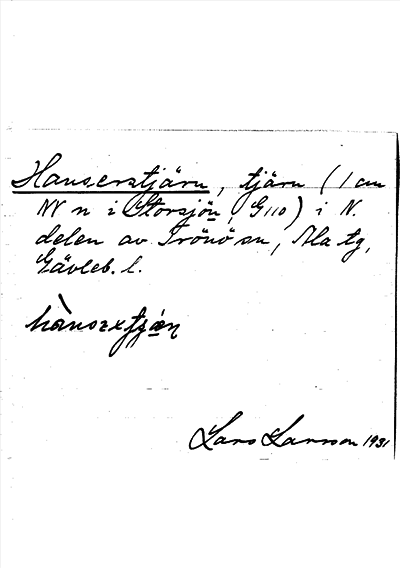 Hanserstjärn, tjärn (1 cm
NV n i Storsjön, G110) i N.
delen av Trönö sn, Ala tg,
Gävleb. l.
Lars Larsson 1931